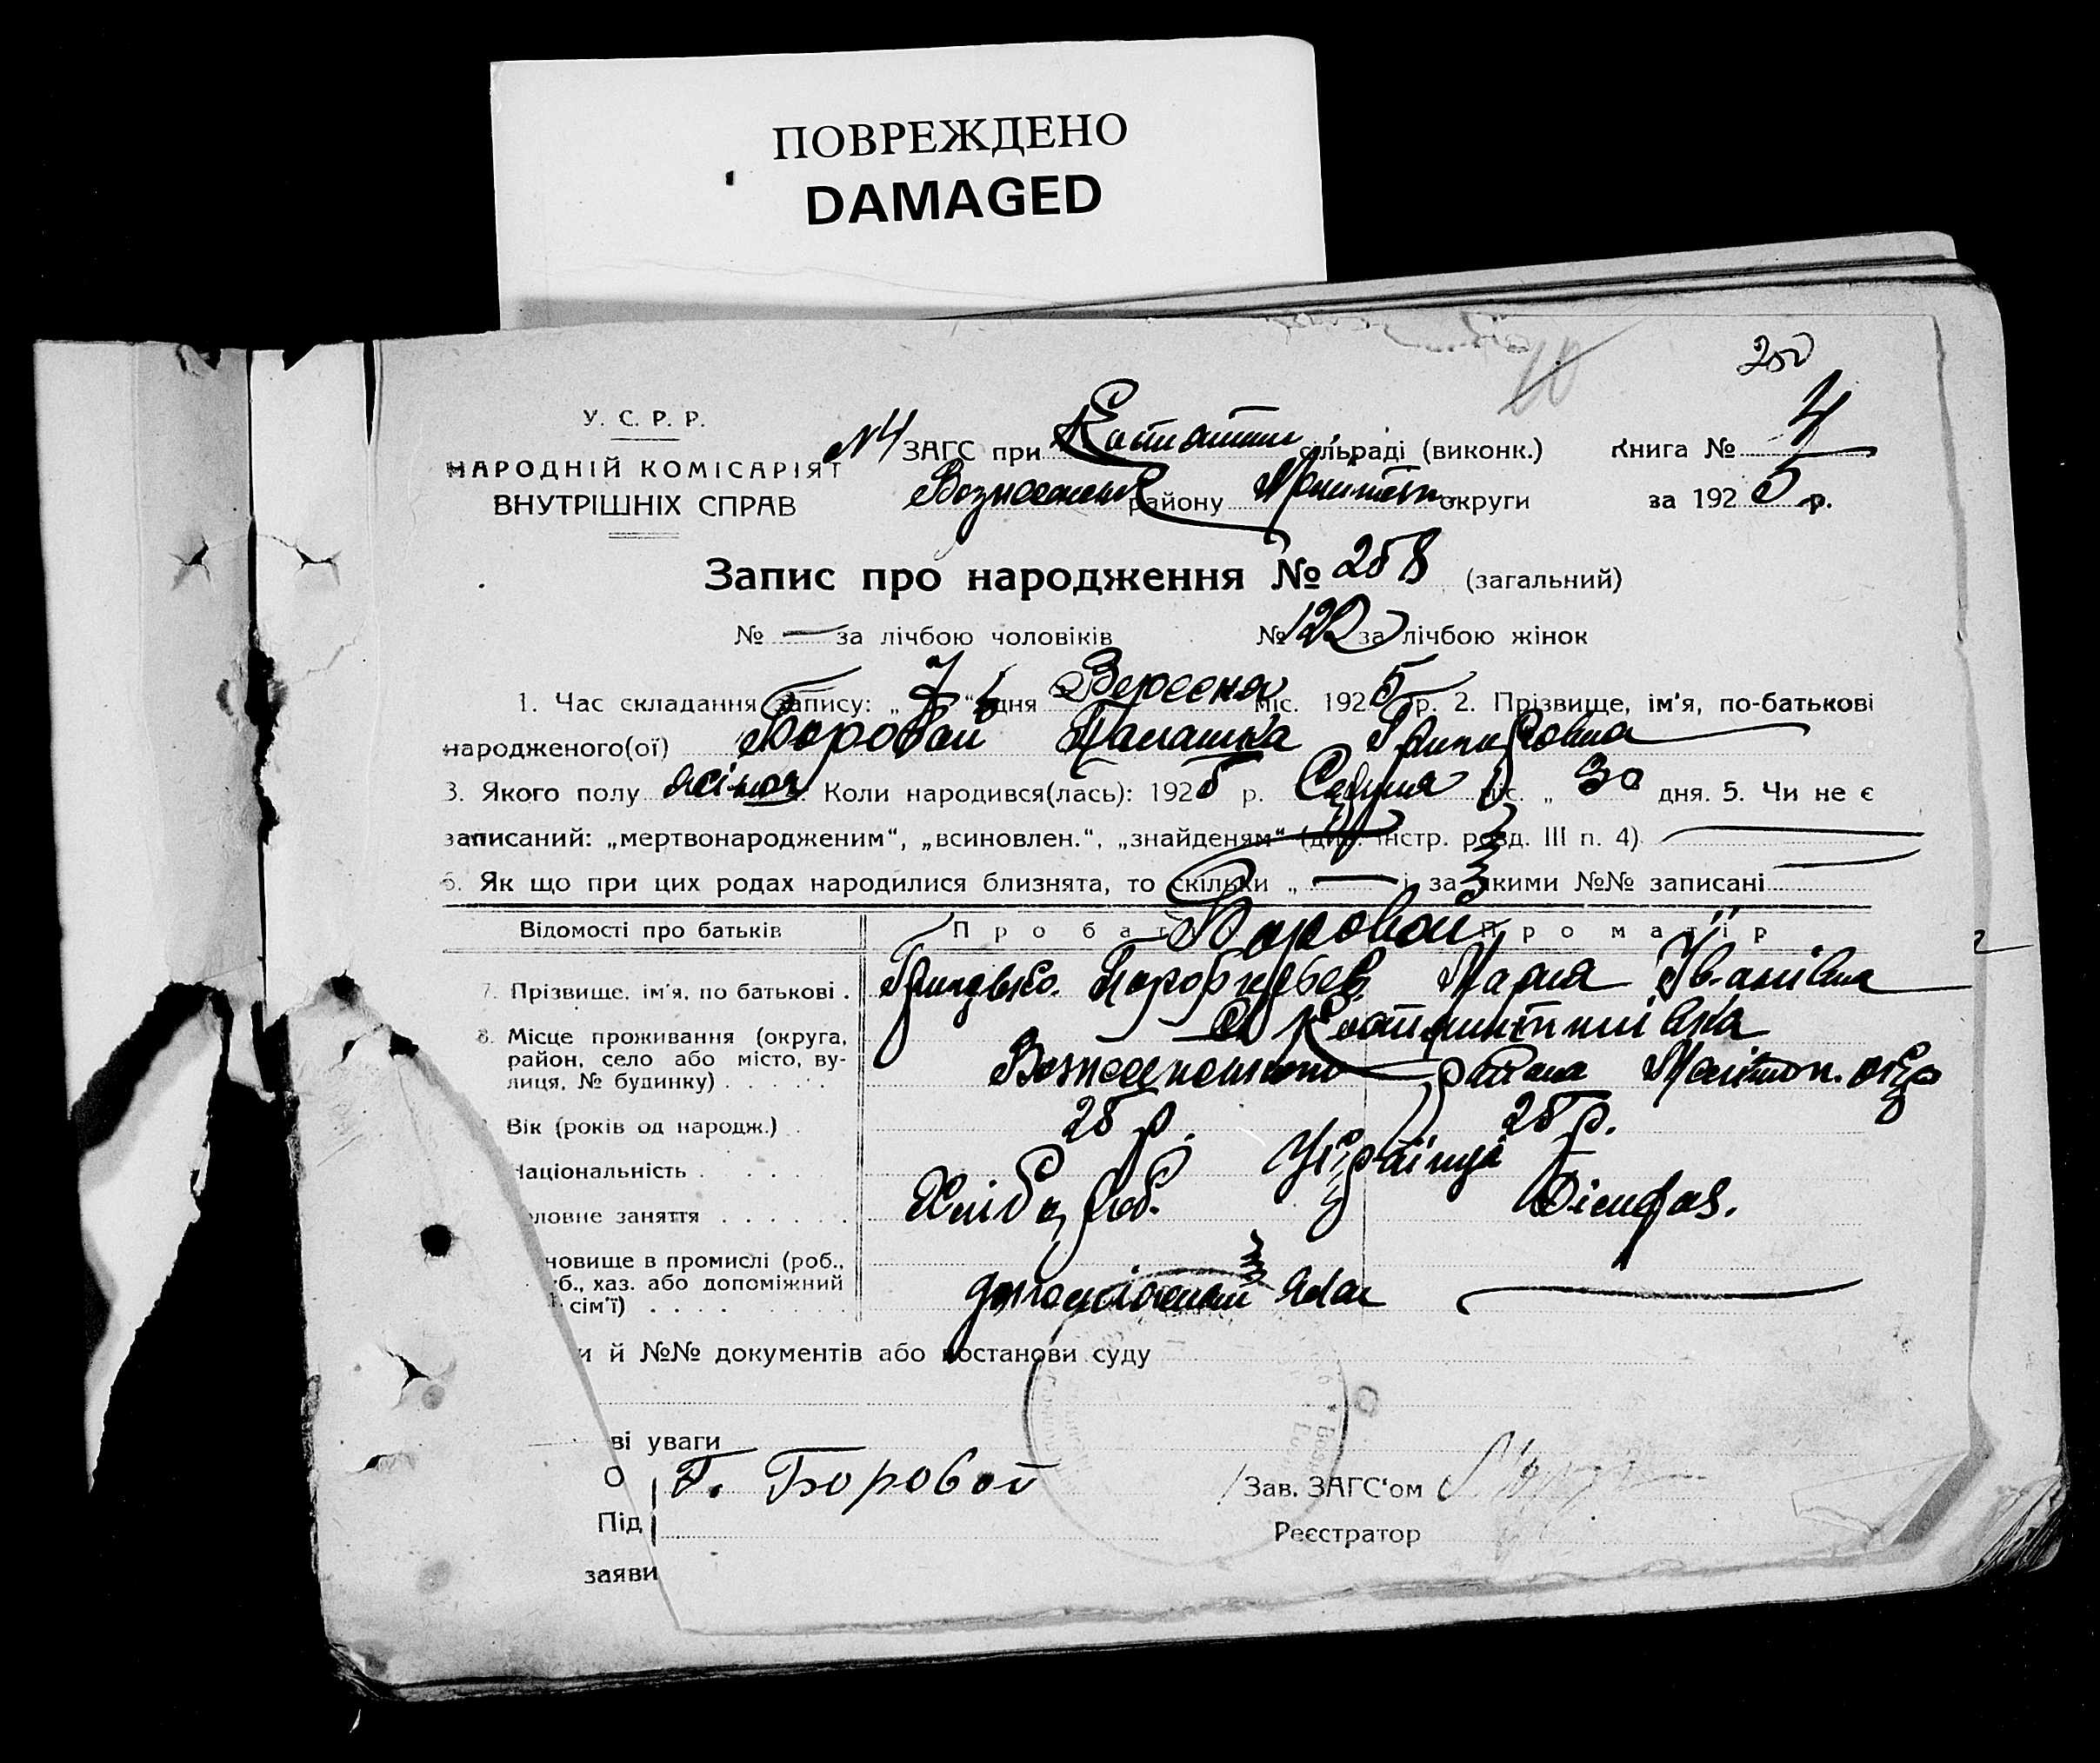 ПОВРЕЖДЕНО
DAMAGED
250
У. С. Р. Р.
НАРОДНІЙ КОМІСАРІЯТ
ВНУТРІШНІХ СПРАВ
№4 ЗАГС при сільраді (виконк.) Книга № 4
району округи за 1925 р.
Запис про народження № 258 (загальний)
№ — за лічбою чоловіків № 122 за лічбою жінок
1. Час складання запису: „ 7 “ дня Вересня міс. 1925 р. 2. Прізвище, ім'я, по-батькові
народженого(ої) Боровой Палашка
3. Якого полу жіноч Коли народився(лась): 1925 р. Серпня міс. „ 30 дня. 5. Чи не є
записаний: „мертвонародженим“, „всиновлен.“, „знайденям“ (див. інстр. розд. III п. 4) —
6. Як що при цих родах народилися близнята, то скільки „ — і за якими №№ записані —
Відомості про батьків Про батька Про матір
Боровой
7. Прізвище, ім'я, по батькові . Мария Іванівна
8. Місце проживання (округа,
район, село або місто, ву-
лиця, № будинку) . . . . .
с. Костянтинівка
Вознесенського району Мелітоп. окр
Вік (років од народж.) . 28 р. 28 р.
Національність . . . . Українці
ловне заняття . . . . . . Хлібороб.
новище в промислі (роб.,
б., хаз. або допоміжний
сім'ї) . . . . . . . .
и й №№ документів або постанови суду
ві уваги
О Г. Боровой Зав. ЗАГС'ом
Під Реєстратор
заяви